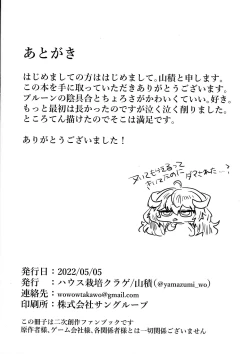 あとがき
はじめましての方ははじめまして。山積と申します。
この本を手に取っていただきありがとうございます。
ブルーンの陰具合とちょろさがかわいくていい。好き。
もっと最初は長かったのですが泣く泣く削りました。
ところてん描けたのでそこは満足です。
ありがとうございました！
発行日：2022/05/05
発行　：ハウス栽培クラゲ/山積(@yamazumi_wo)
連絡先：wowowtakawo@gmail.com
印刷所：株式会社サングループ
この冊子は二次創作ファンブックです
原作者様、ゲーム会社様、各関係者様とは一切関係ございません